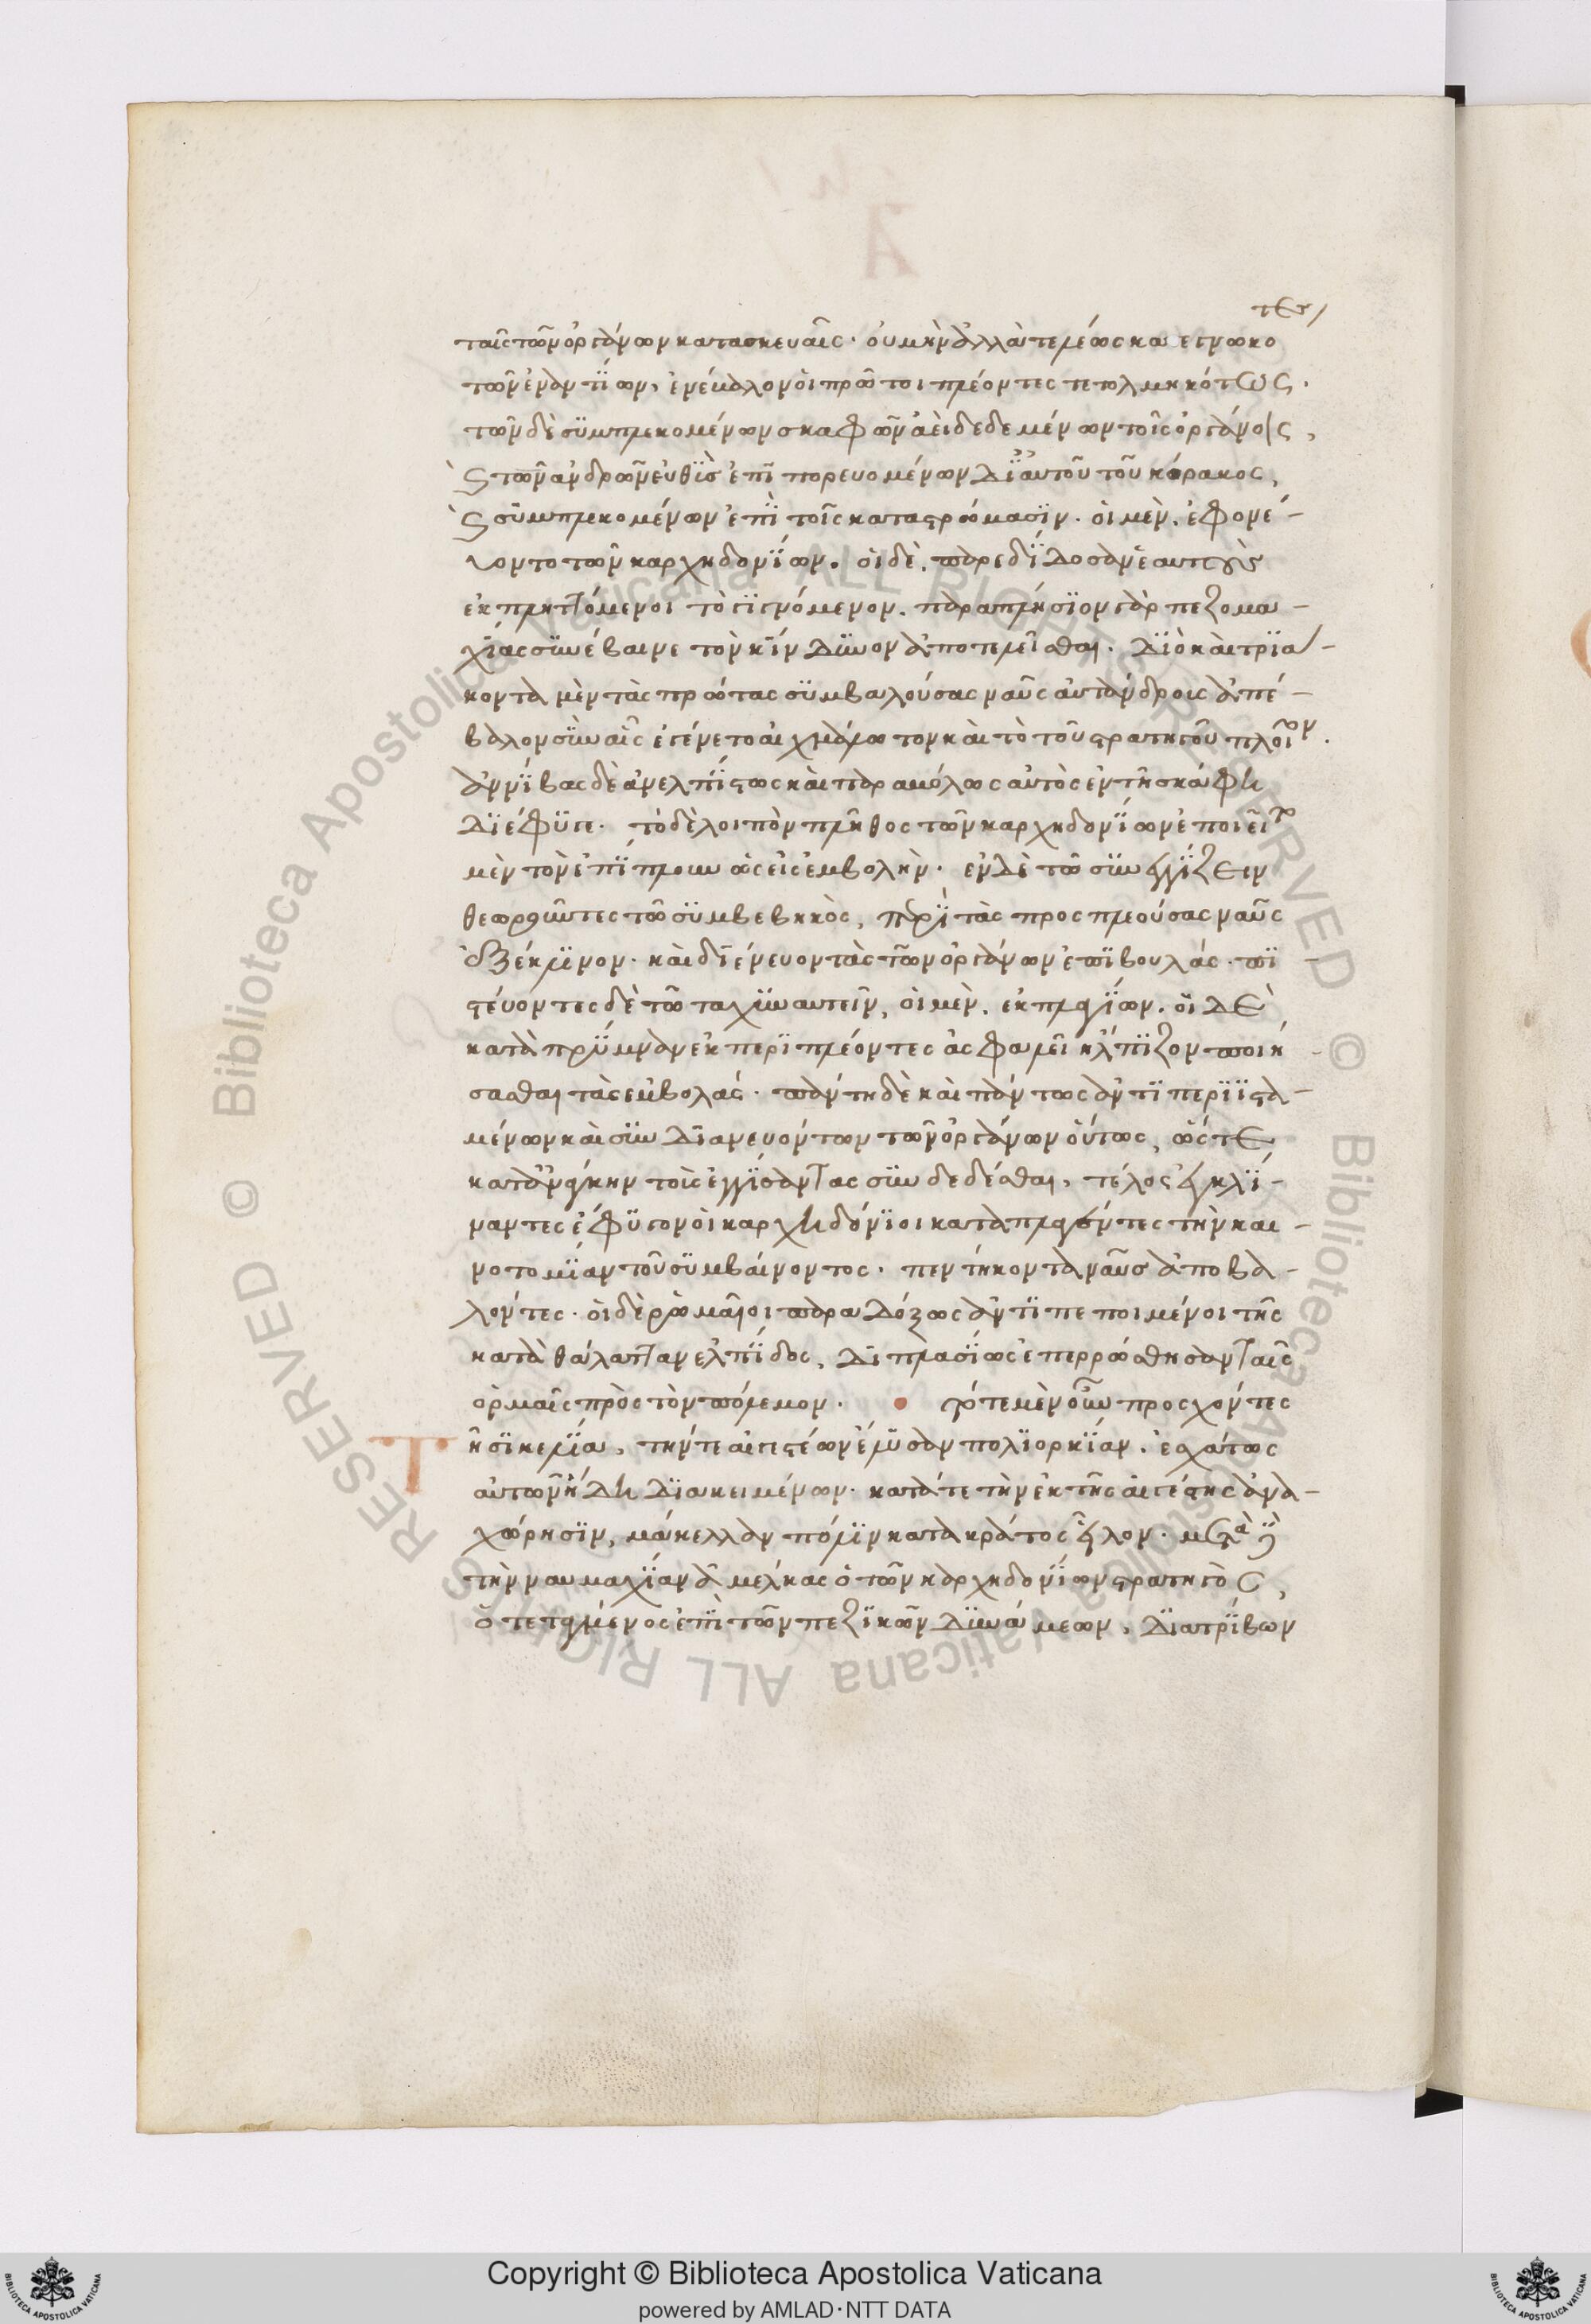 τες
ταῖς τῶν ὀργάνων κατασκευαῖς· οὐ μὴν ἀλλὰ τελέως κατεγνωκό
τῶν ἐναντίων, ἐνέβαλον οἱ πρῶτοι πλέοντες τετολμηκότως.
τῶν δὲ συμπλεκομένων σκαφῶν ἀεὶ δεδεμένων τοῖς ὀργάνοις,
ϛ τῶν ἀνδρῶν εὐθὺς ἐπιπορευομένων δι' αὐτοῦ τοῦ κόρακος,
ϛ συμπλεκομένων ἐπὶ τοῖς καταστρώμασιν. οἱ μὲν, ἐφονε-
ύοντο τῶν καρχηδονίων. οἱ δὲ, παρεδίδοσαν ἑαυτοὺς
ἐκπληττόμενοι τὸ γιγνόμενον. παραπλήσιον γὰρ πεζομα-
χίας συνέβαινε τὸν κίνδυνον ἀποτελεῖσθαι. διὸ καὶ τριά-
κοντα μὲν τὰς πρώτας συμβαλούσας ναῦς αὐτάνδροις ἀπέ-
βαλον σὺν αἷς ἐγένετο αἰχμάλωτον καὶ τὸ τοῦ στρατηγοῦ πλοῖον.
ἀννίβας δὲ ἀνελπίστως καὶ παραβόλως αὐτὸς ἐν τῇ σκάφῃ
διέφυγε. τὸ δὲ λοιπὸν πλῆθος τῶν καρχηδονίων ἐποιεῖτο
μὲν τὸν ἐπίπλουν ὡς εἰς ἐμβολὴν. ἐν δὲ τῷ συνεγγίζειν
θεωροῦντες τὸ συμβεβηκὸς, περὶ τὰς προσπλεούσας ναῦς
ἐξέκλινον. καὶ διένευον τὰς τῶν ὀργάνων ἐπιβουλάς. πι-
στεύοντες δὲ τῷ ταχυναυτεῖν, οἱ μὲν, ἐκ πλαγίων. οἱ δὲ
κατὰ πρύμναν ἐκπεριπλέοντες ἀσφαλεῖ ἤλπιζον ποιή-
σασθαι τὰς ἐμβολάς. πάντῃ δὲ καὶ πάντως ἀντιπεριϊστα-
μένων καὶ συνδιανευόντων τῶν ὀργάνων οὕτως, ὥς τε
κατ' ἀνάγκην τοὺς ἐγγίσαντας συνδεδέσθαι, τέλος ἐγκλί-
ναντες ἔφυγον οἱ καρχηδόνιοι καταπλαγέντες τὴν και-
νοτομίαν τοῦ συμβαίνοντος. πεντήκοντα ναῦς ἀποβα-
λόντες. οἱ δὲ ῥωμαῖοι παραδόξως ἀντιπεποιμένοι τῆς
κατὰ θάλατταν ἐλπίδος, διπλασίως ἐπερρώσθησαν ταῖς
ὁρμαῖς πρὸς τὸν πόλεμον. Τότε μὲν οὖν προσχόντες
τῇ σικελίᾳ, τήν τε αἰγεστέων ἔλυσαν πολιορκίαν, ἐσχάτως
αὐτῶν ἤδη διακειμένων. κατά τε τὴν ἐκ τῆς αἰγέστης ἀνα-
χώρησιν, μάκελλαν πόλιν κατὰ κράτος εἷλον. μετὰ δὲ
τὴν ναυμαχίαν ἀμίλκας ὁ τῶν καρχηδονίων στρατηγὸς,
ὁ τεταγμένος ἐπὶ τῶν πεζικῶν δυνάμεων, διατρίβων
Copyright © Biblioteca Apostolica Vaticana
powered by AMLAD·NTT DATA